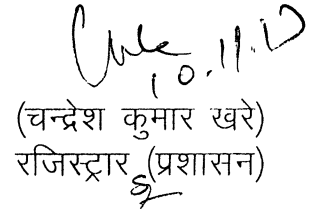 10.11.17
(चन्द्रेश कुमार खरे)
रजिस्ट्रार (प्रशासन)